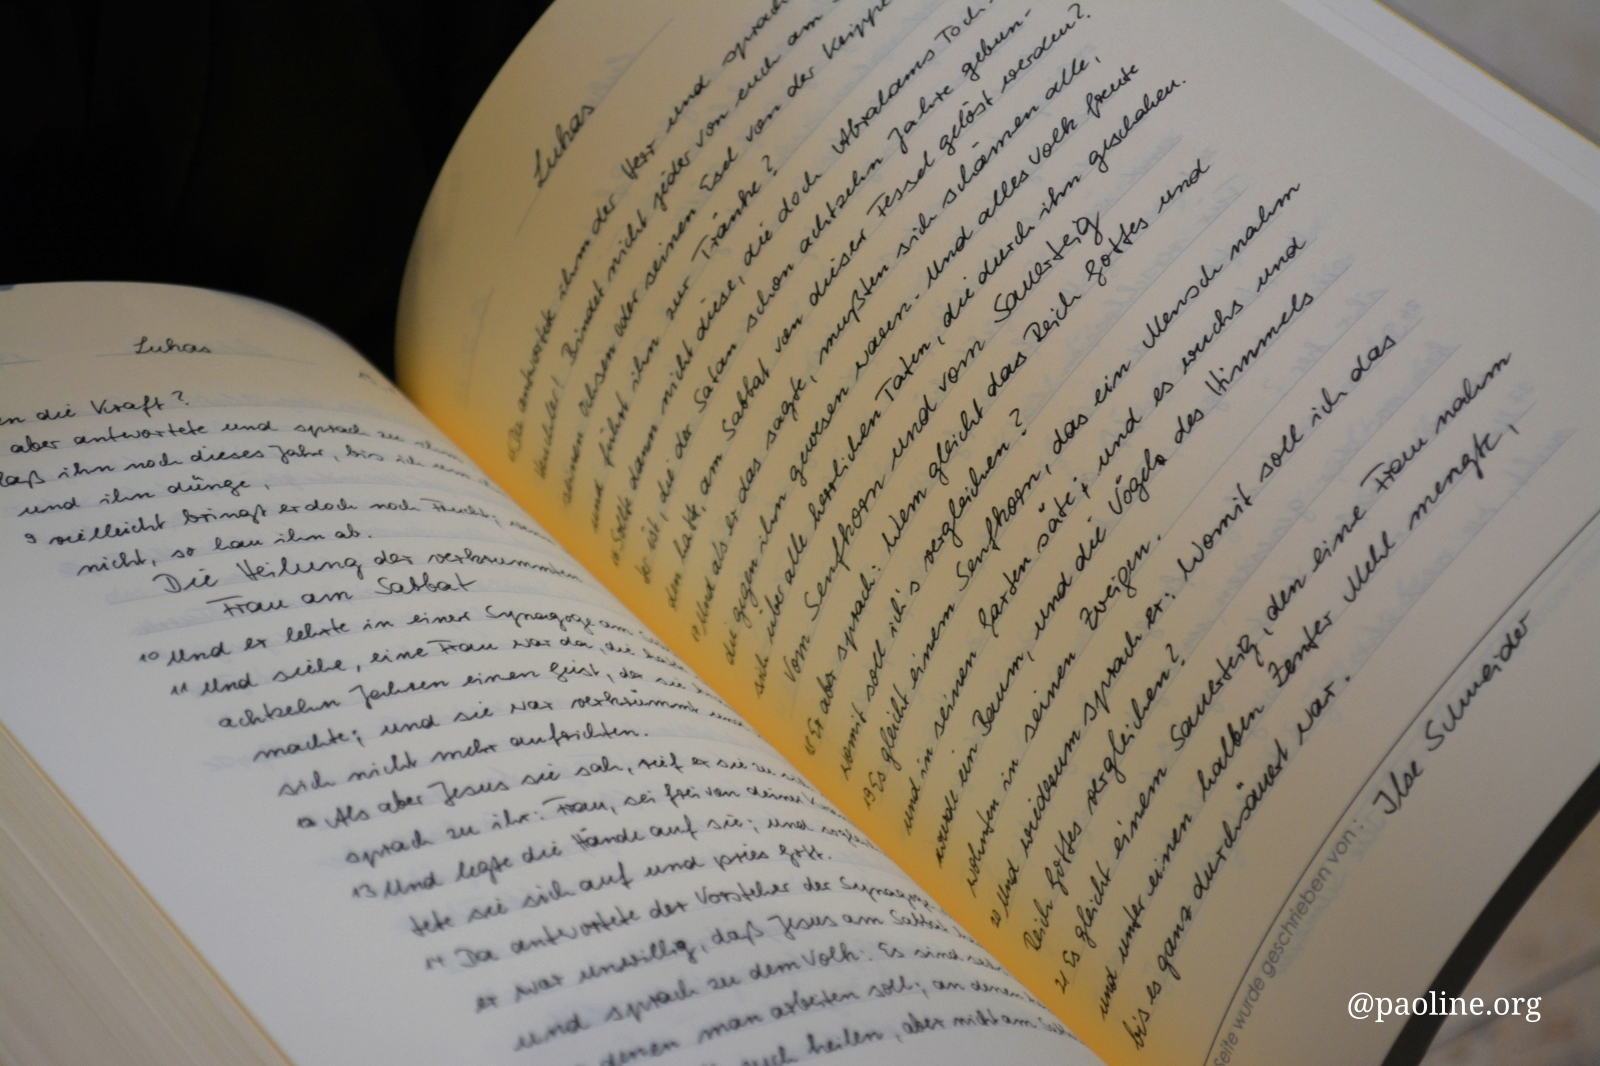 Lukas
en die Kraft?
aber antwortete und sprach zu ihm
laß ihn noch dieses Jahr, bis ich um
und ihn dünge,
9 vielleicht bringt er doch noch Frucht;
nicht, so hau ihn ab.
Die Heilung der verkrümmten
Frau am Sabbat
10 Und er lehrte in einer Synagoge am
11 Und siehe, eine Frau war da, die
achtzehn Jahren einen Geist, der sie
machte; und sie war verkrümmt und
sich nicht mehr aufrichten.
12 Als aber Jesus sie sah, rief er sie zu
sprach zu ihr: Frau, sei frei von deiner
13 Und legte die Hände auf sie; und
tete sie sich auf und pries Gott.
14 Da antwortete der Vorsteher der Synagoge
er war unwillig, daß Jesus am Sabbat
und sprach zu dem Volk: Es sind
denen man arbeiten soll; an denen
euch heilen, aber nicht am
Lukas
Da antwortete ihm der Herr und sprach
Heuchler! Bindet nicht jeder von euch am
seinen Ochsen oder seinen Esel von der Krippe
und führt ihn zur Tränke?
16 Sollte dann nicht diese, die doch Abrahams Toch-
ter ist, die der Satan schon achtzehn Jahre gebun-
den hatte, am Sabbat von dieser Fessel gelöst werden?
17 Und als er das sagte, mußten sich schämen alle,
die gegen ihn gewesen waren. Und alles Volk freute
sich über alle herrlichen Taten, die durch ihn geschahen.
Vom Senfkorn und vom Sauerteig
18 Er aber sprach: Wem gleicht das Reich Gottes und
womit soll ich's vergleichen?
19 Es gleicht einem Senfkorn, das ein Mensch nahm
und in seinen Garten säte; und es wuchs und
wurde ein Baum, und die Vögel des Himmels
wohnten in seinen Zweigen.
20 Und wiederum sprach er: Womit soll ich das
Reich Gottes vergleichen?
21 Es gleicht einem Sauerteig, den eine Frau nahm
und unter einen halben Zentner Mehl mengte,
bis es ganz durchsäuert war.
Seite wurde geschrieben von: Ilse Schneider
@paoline.org